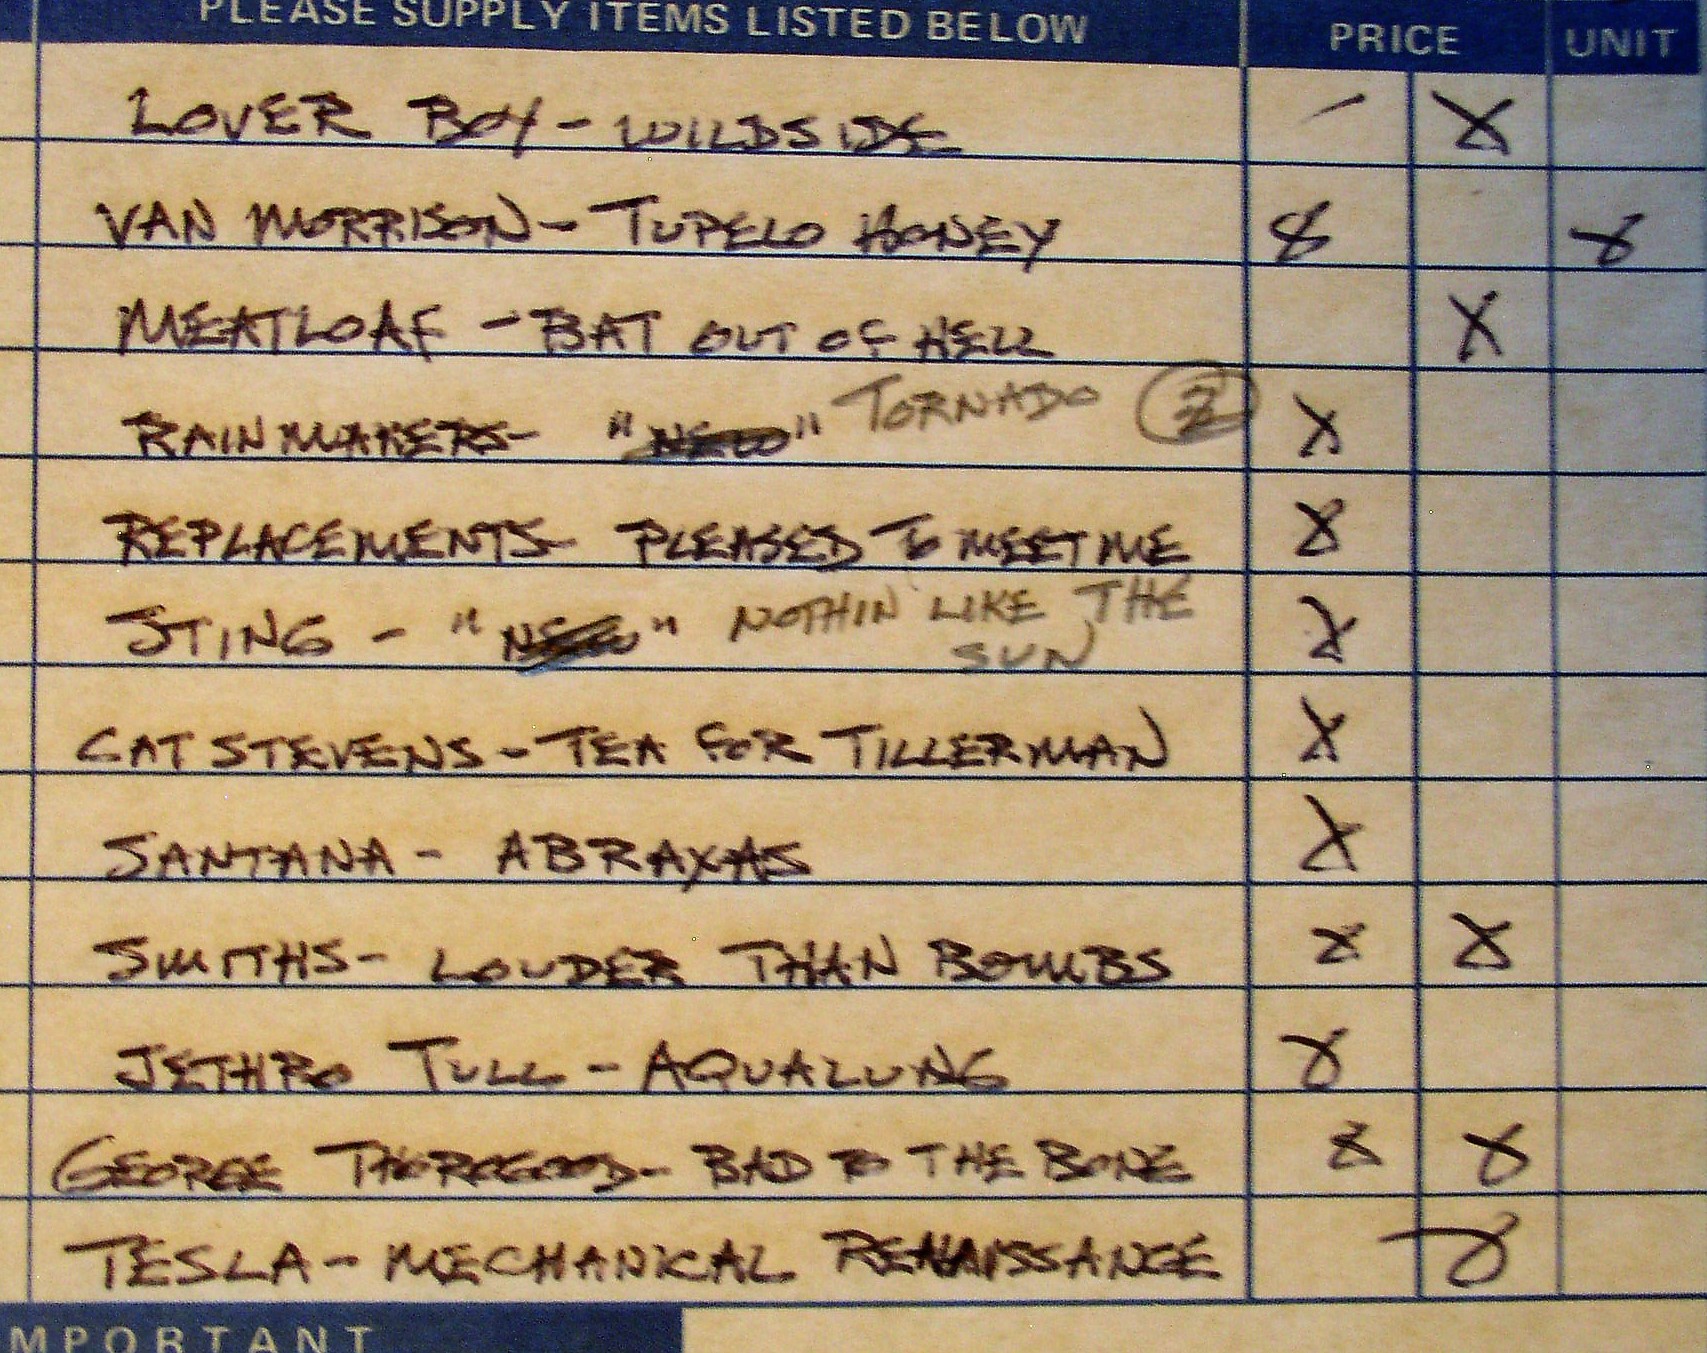 PLEASE SUPPLY ITEMS LISTED BELOW PRICE UNIT
LOVER BOY - WILDSIDE - X
VAN MORRISON - TUPELO HONEY 8 8
MEATLOAF - BAT OUT OF HELL X
RAINMAKERS - "NEW" TORNADO 2 X
REPLACEMENTS - PLEASED TO MEET ME X
STING - "NEW" NOTHIN' LIKE THE X
SUN
CAT STEVENS - TEA FOR TILLERMAN X
SANTANA - ABRAXAS X
SMITHS - LOUDER THAN BOMBS X X
JETHRO TULL - AQUALUNG X
GEORGE THOROGOOD - BAD TO THE BONE X X
TESLA - MECHANICAL RENAISSANCE X
MPORTANT